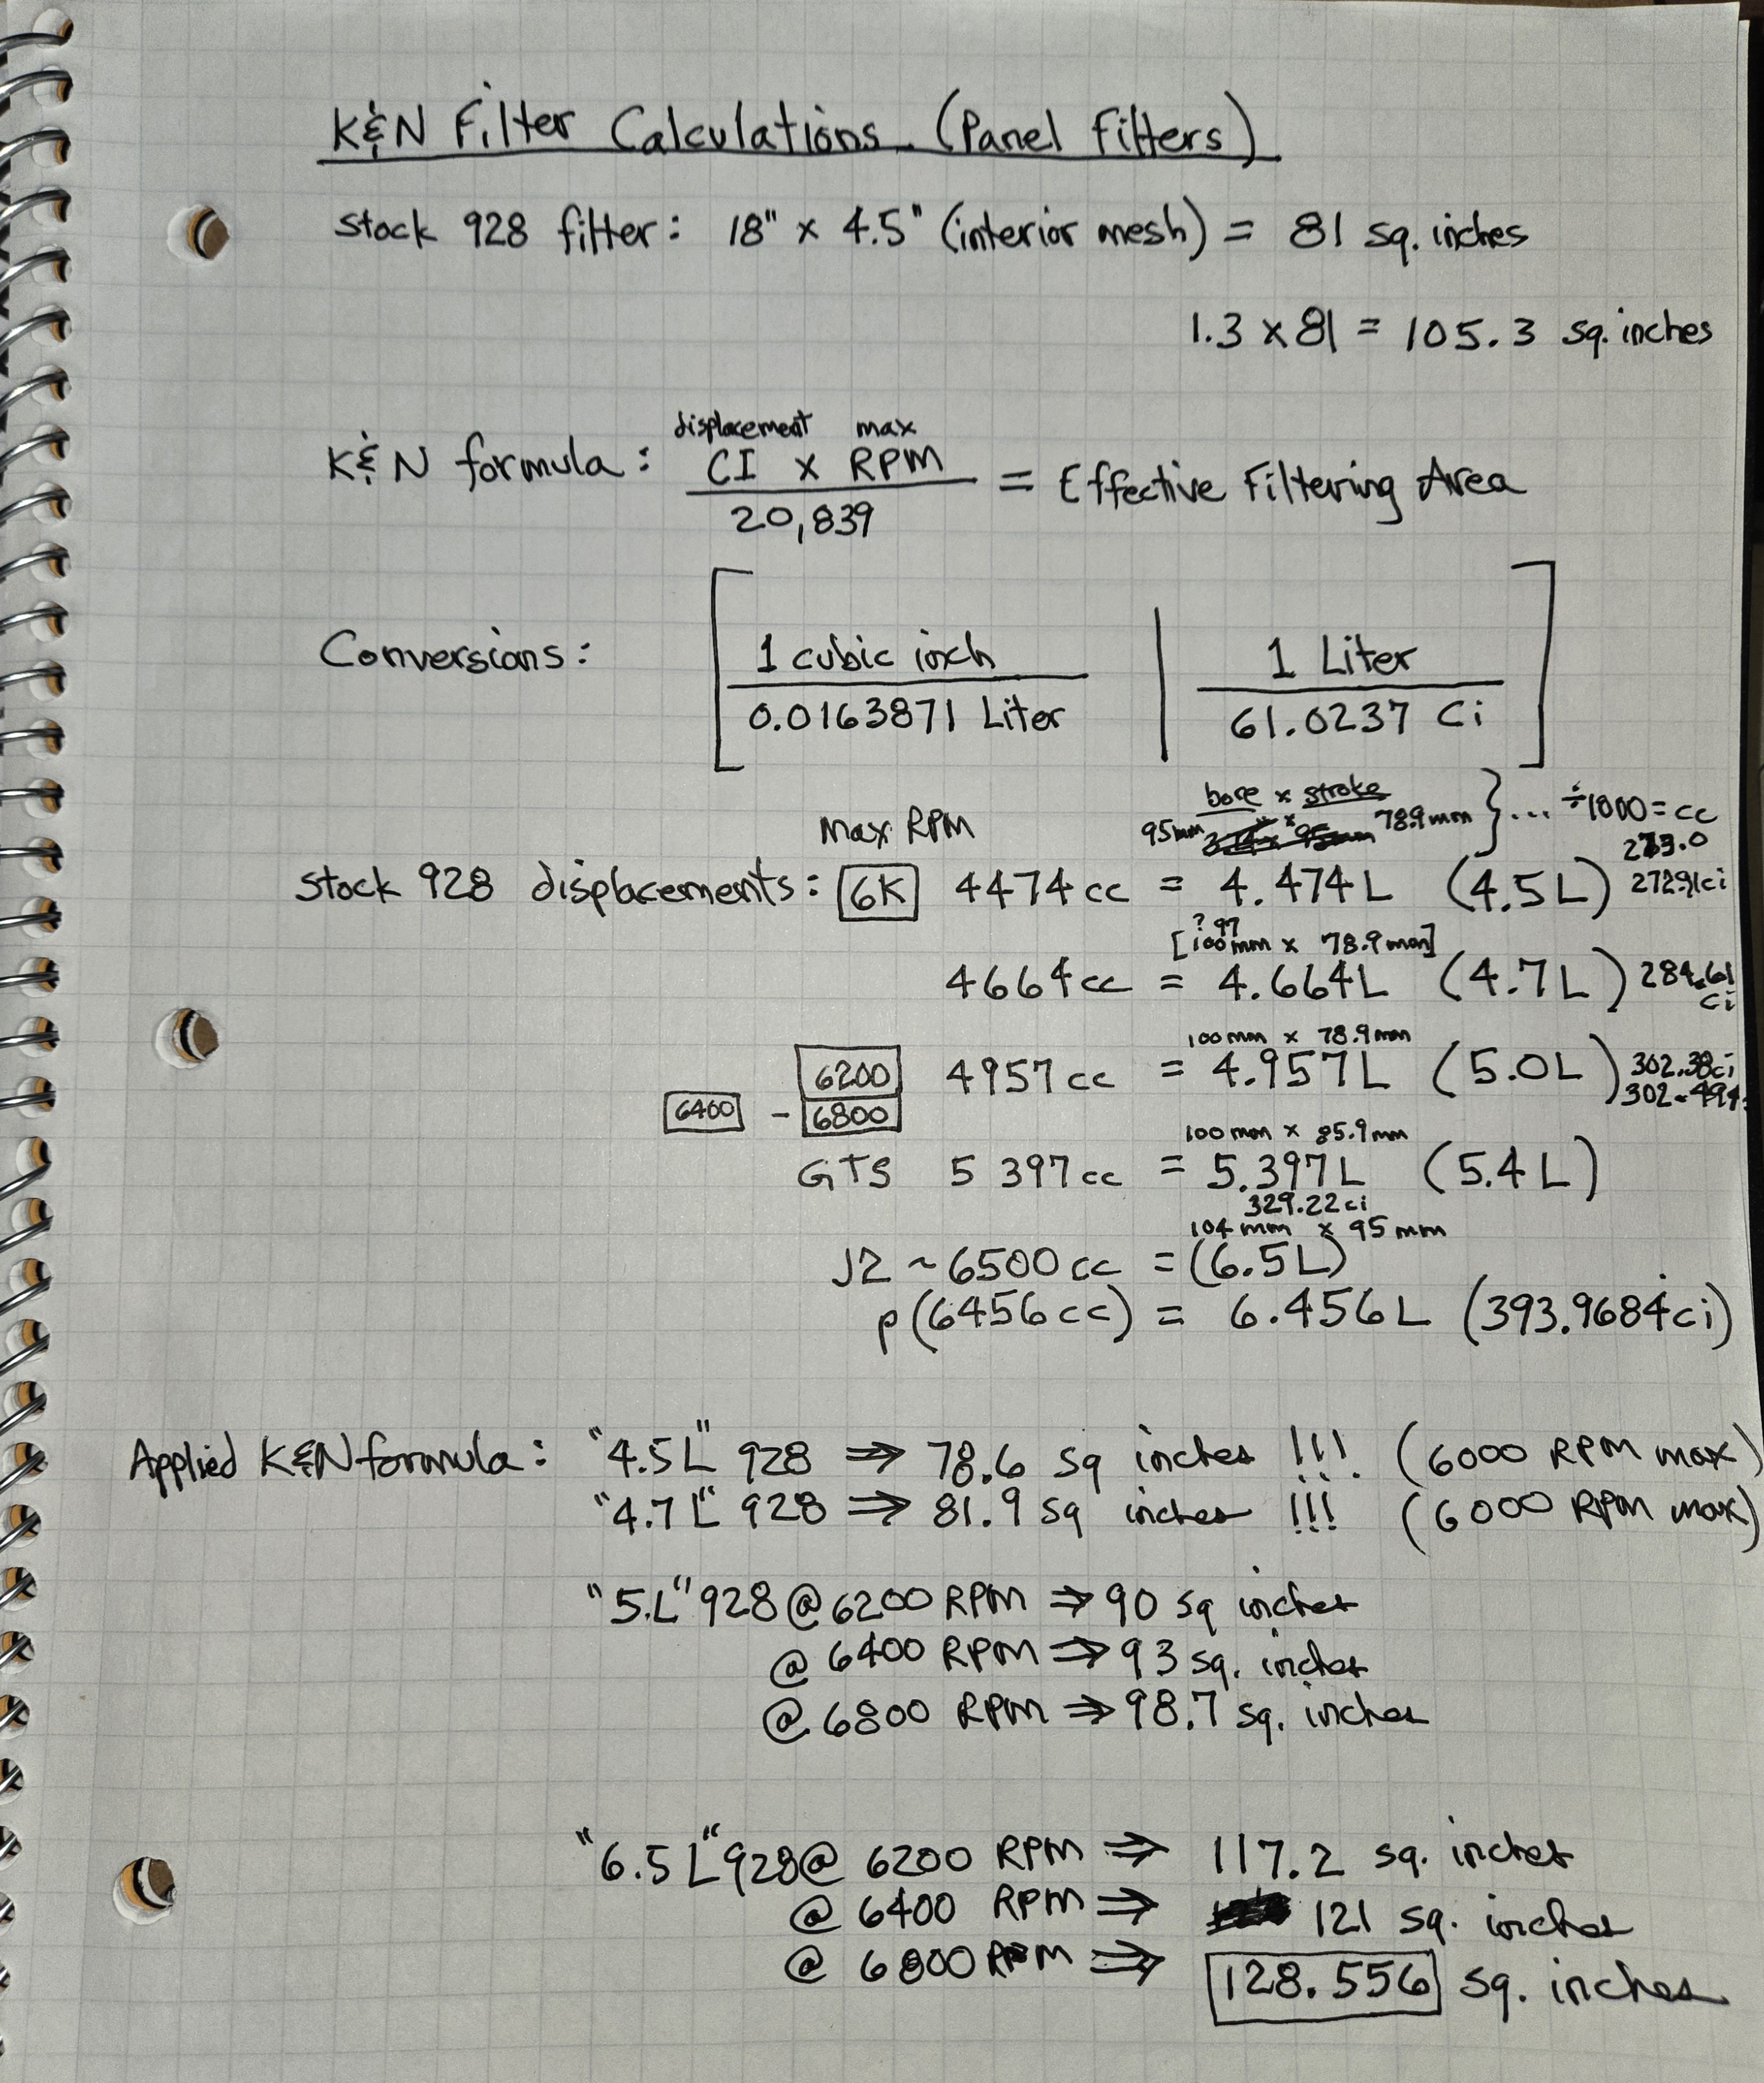 K&N Filter Calculations (Panel Filters)
stock 928 filter: 18" x 4.5" (interior mesh) = 81 sq. inches
1.3 x 81 = 105.3 sq. inches
displacement max
K&N formula: CI x RPM = Effective Filtering Area
20,839
Conversions: [ 1 cubic inch | 1 Liter ]
0.0163871 Liter 61.0237 Ci
bore x stroke
Max RPM 95mm x 78.9mm } ... ÷1000 = cc
273.0
stock 928 displacements: 6K 4474 cc = 4.474L (4.5L) 272.91ci
? 97
[100mm x 78.9mm]
4664 cc = 4.664L (4.7L) 284.61 ci
100mm x 78.9mm
6200 4957 cc = 4.957L (5.0L) 302.38ci
6400 - 6800 302.49
100mm x 85.9mm
GTS 5397 cc = 5.397L (5.4L)
329.22 ci
104mm x 95mm
J2 ~ 6500 cc = (6.5L)
p(6456 cc) = 6.456L (393.9684ci)
Applied K&N formula: "4.5L" 928 ⇒ 78.6 sq inches !!! (6000 RPM max)
"4.7L" 928 ⇒ 81.9 sq inches !!! (6000 RPM max)
"5.L" 928 @ 6200 RPM ⇒ 90 sq inches
@ 6400 RPM ⇒ 93 sq. inches
@ 6800 RPM ⇒ 98.7 sq. inches
"6.5L" 928 @ 6200 RPM ⇒ 117.2 sq. inches
@ 6400 RPM ⇒ 121 sq. inches
@ 6800 RPM ⇒ 128.556 sq. inches